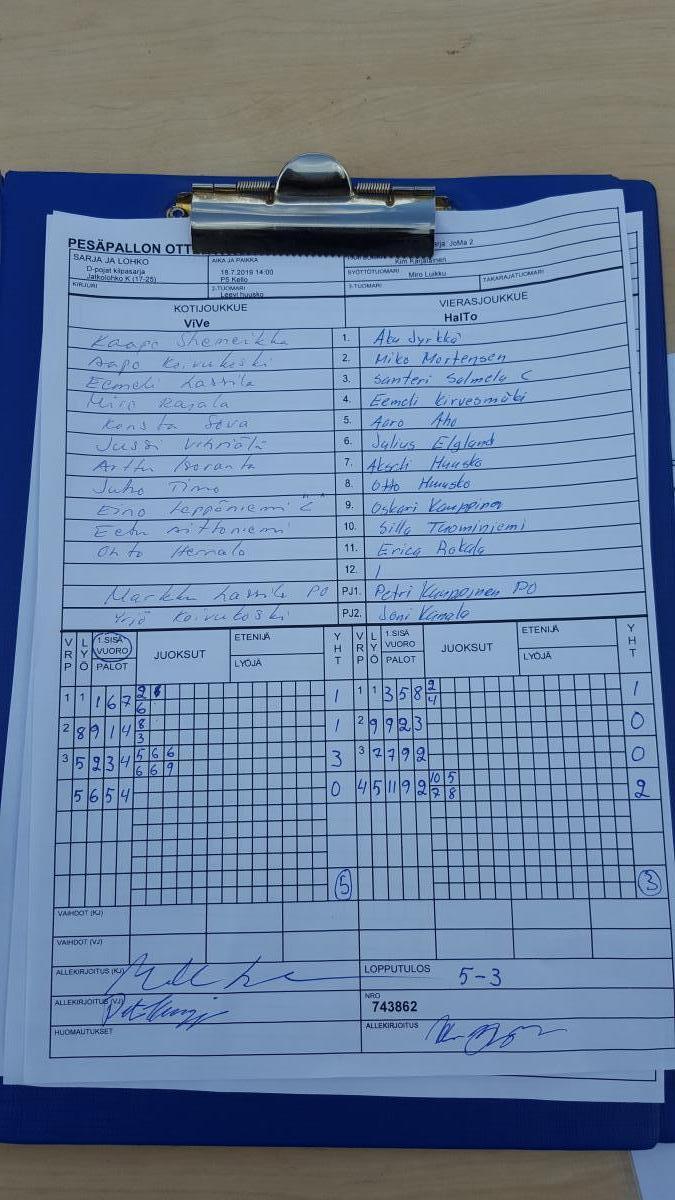 PESÄPALLON OTT
arja: JoMa 2
SARJA JA LOHKO AIKA JA PAIKKA Kim Karjalainen
D-pojat kilpasarja 18.7.2019 14:00 SYÖTTÖTUOMARI TAKARAJATUOMARI
Jatkolohko K (17-25) PS Kello Miro Luikku
KIRJURI 2-TUOMARI 3-TUOMARI
Leevi huusko
KOTIJOUKKUE VIERASJOUKKUE
ViVe HalTo
Kaapo Shemeikka 1. Aku Jyrkkä
Aapo Koivukoski 2. Miko Mortensen
Eemeli Lassila 3. Santeri Salmela C
Miro Rajala 4. Eemeli Kirvesmäki
Konsta Sova 5. Aaro Aho
Jussi Vihriälä 6. Julius Elgland
Arttu Isoranta 7. Akseli Huusko
Juho Timo 8. Otto Huusko
Eino Leppäniemi C 9. Oskari Kauppinen
Eetu Aittoniemi 10. Silla Tuominiemi
Ohto Hernala 11. Erica Rokala
12. /
Markku Lassila PO PJ1. Petri Kauppinen PO
Yrjö Koivukoski PJ2. Joni Kamala
VRP LYÖ 1.SISÄ VUORO PALOT JUOKSUT ETENIJÄ LYÖJÄ YHT VRP LYÖ 1.SISÄ VUORO PALOT JUOKSUT ETENIJÄ LYÖJÄ YHT
1 1 1 6 7 2 6 1 1 1 3 5 8 2 4 1
2 8 9 1 4 8 3 1 2 9 9 2 3 0
3 5 2 3 4 5 6 6 3 3 7 7 9 2 0
6 6 9
5 6 5 4 0 4 5 11 9 2 10 5 2
7 8
5 3
VAIHDOT (KJ)
VAIHDOT (VJ)
ALLEKIRJOITUS (KJ) LOPPUTULOS 5-3
ALLEKIRJOITUS (VJ) NRO
743862
HUOMAUTUKSET ALLEKIRJOITUS